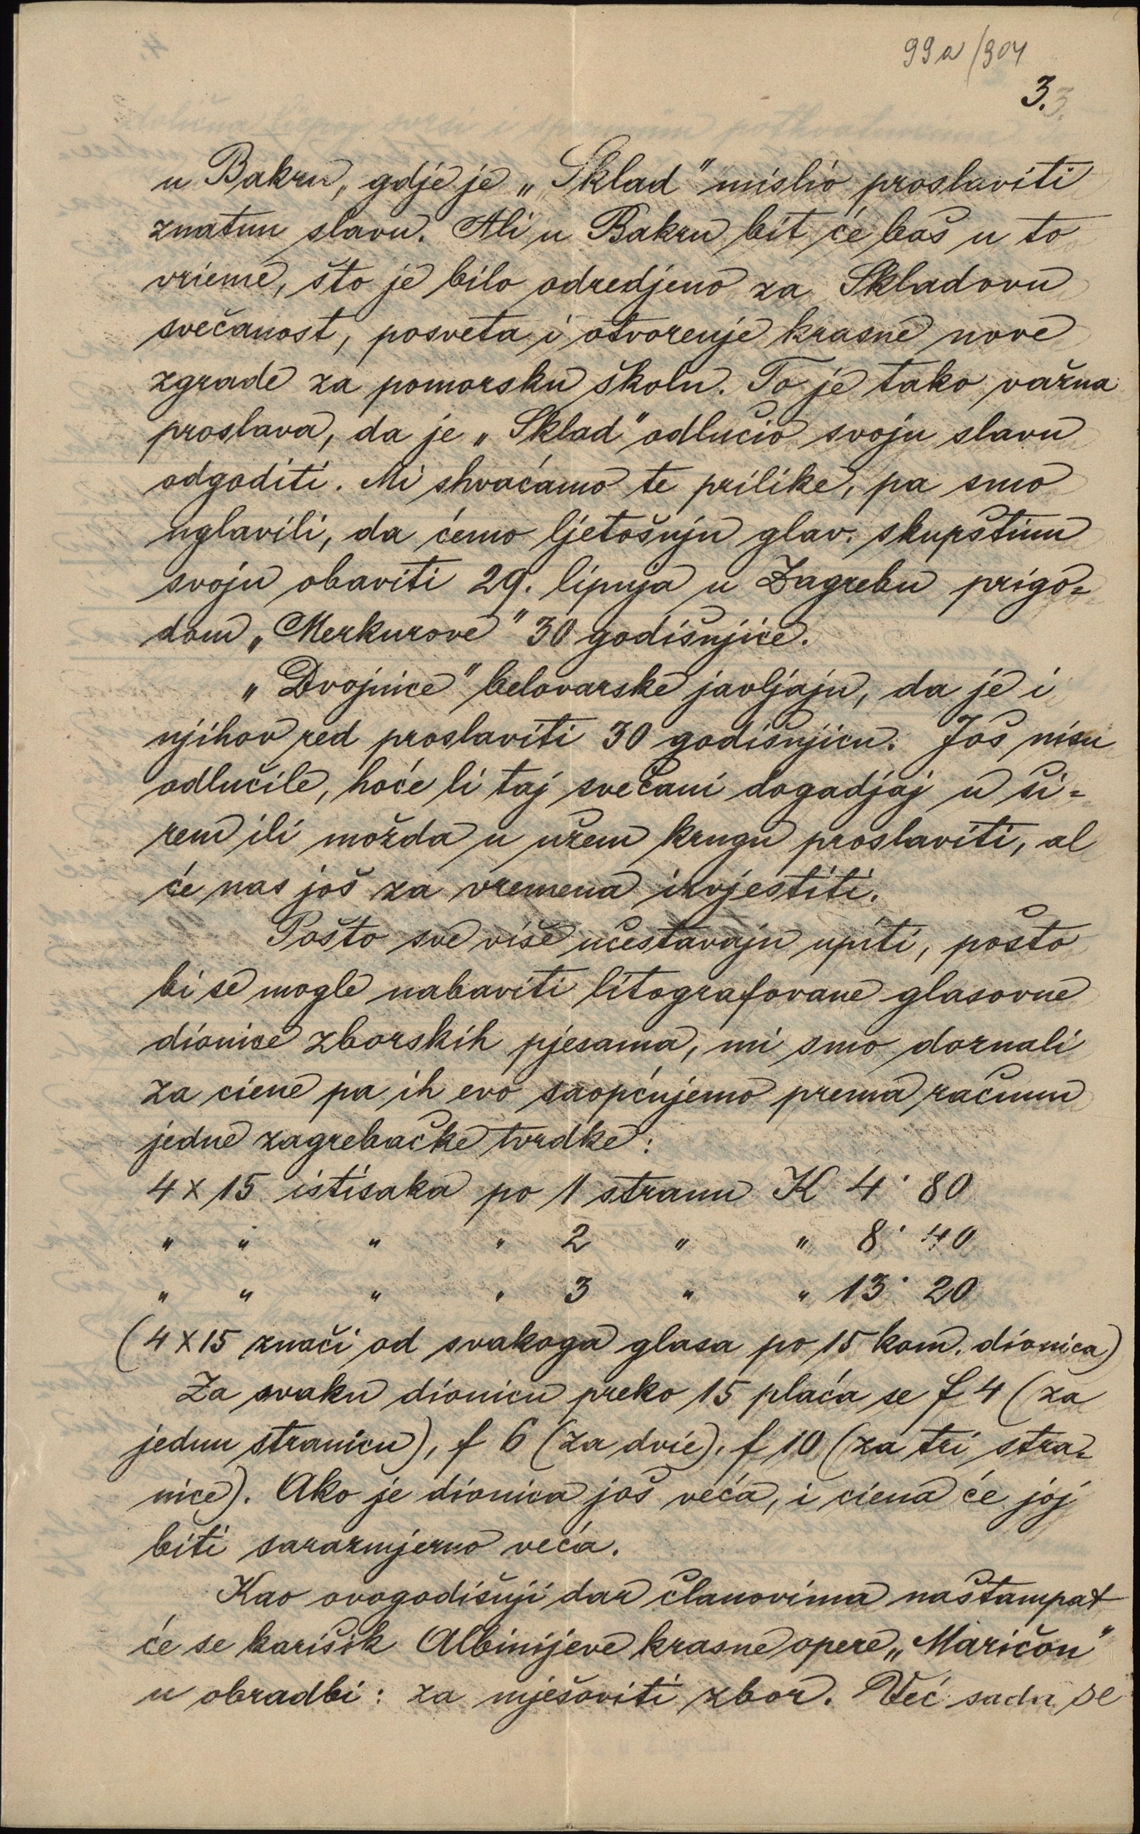 99a/904
3.
u Bakru, gdje je „Sklad" mislio proslaviti
znatnu slavu. Ali u Bakru bit će baš u to
vrieme, što je bilo odredjeno za Skladovu
svečanost, posveta i otvorenje krasne nove
zgrade za pomorsku školu. To je tako važna
proslava, da je „Sklad" odlučio svoju slavu
odgoditi. Mi shvaćamo te prilike, pa smo
uglavili, da ćemo ljetošnju glav. skupštinu
svoju obaviti 29. lipnja u Zagrebu prigo-
dom „Merkurove" 30 godišnjice.
„Dvojnice" belovarske javljaju, da je i
njihov red proslaviti 30 godišnjicu. Još nisu
odlučile, hoće li taj svečani dogadjaj u ši-
rem ili možda u užem krugu proslaviti, al
će nas još za vremena izvjestiti.
Pošto sve više učestavaju upiti, pošto
bi se mogle nabaviti litografovane glasovne
dionice zborskih pjesama, mi smo doznali
za ciene pa ih evo saopćujemo prema računu
jedne zagrebačke tvrdke:
4 x 15 istisaka po 1 stranu K 4·80
" " " " 2 " " 8·40
" " " " 3 " " 13·20
(4x15 znači od svakoga glasa po 15 kom. dionica)
Za svaku dionicu preko 15 plaća se f 4 (za
jednu stranicu), f 6 (za dvie), f 10 (za tri stra-
nice). Ako je dionica još veća, i ciena će joj
biti sarazmjerno veća.
Kao ovogodišnji dar članovima naštampat
će se karišik Albinijeve krasne opere „Maričon"
u obradbi: za mješoviti zbor. Već sada se